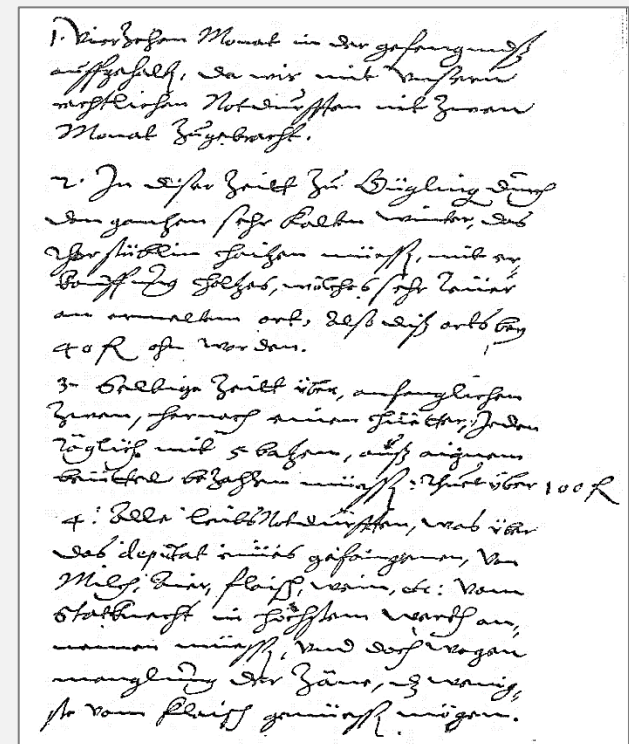 1. Vierzehen Monat in der gefengnuß
auffgehalt, da wir mit unsern
rechtlichen Notdurfften nit zwen
Monat zugebracht.
2. In diser Zeitt zu Gügling durch
den gantzen sehr kalten winter, das
stüblin haitzen müess, mit er,
kauffung holtzes, welches sehr teuer
an ermeltem ort, Also diß orts bey
40 fl ohn worden.
3. Selbige Zeitt über, anfenglichen
zwen, hernach einen hüetter, Jeden
täglich mit 5 batzen, auß aignem
beüttel bezahlen müess: thuet über 100 fl
4: Alle leibs Notdurfften, was über
das deputat eines gefangenen, von
Milch, Aier, flaisch, wein, etc: vom
Statknecht in höchstem werth an,
nemen müess, und doch wegen
manglung der Zäne, das wenig,
ste vom flaisch geniessen mögen.